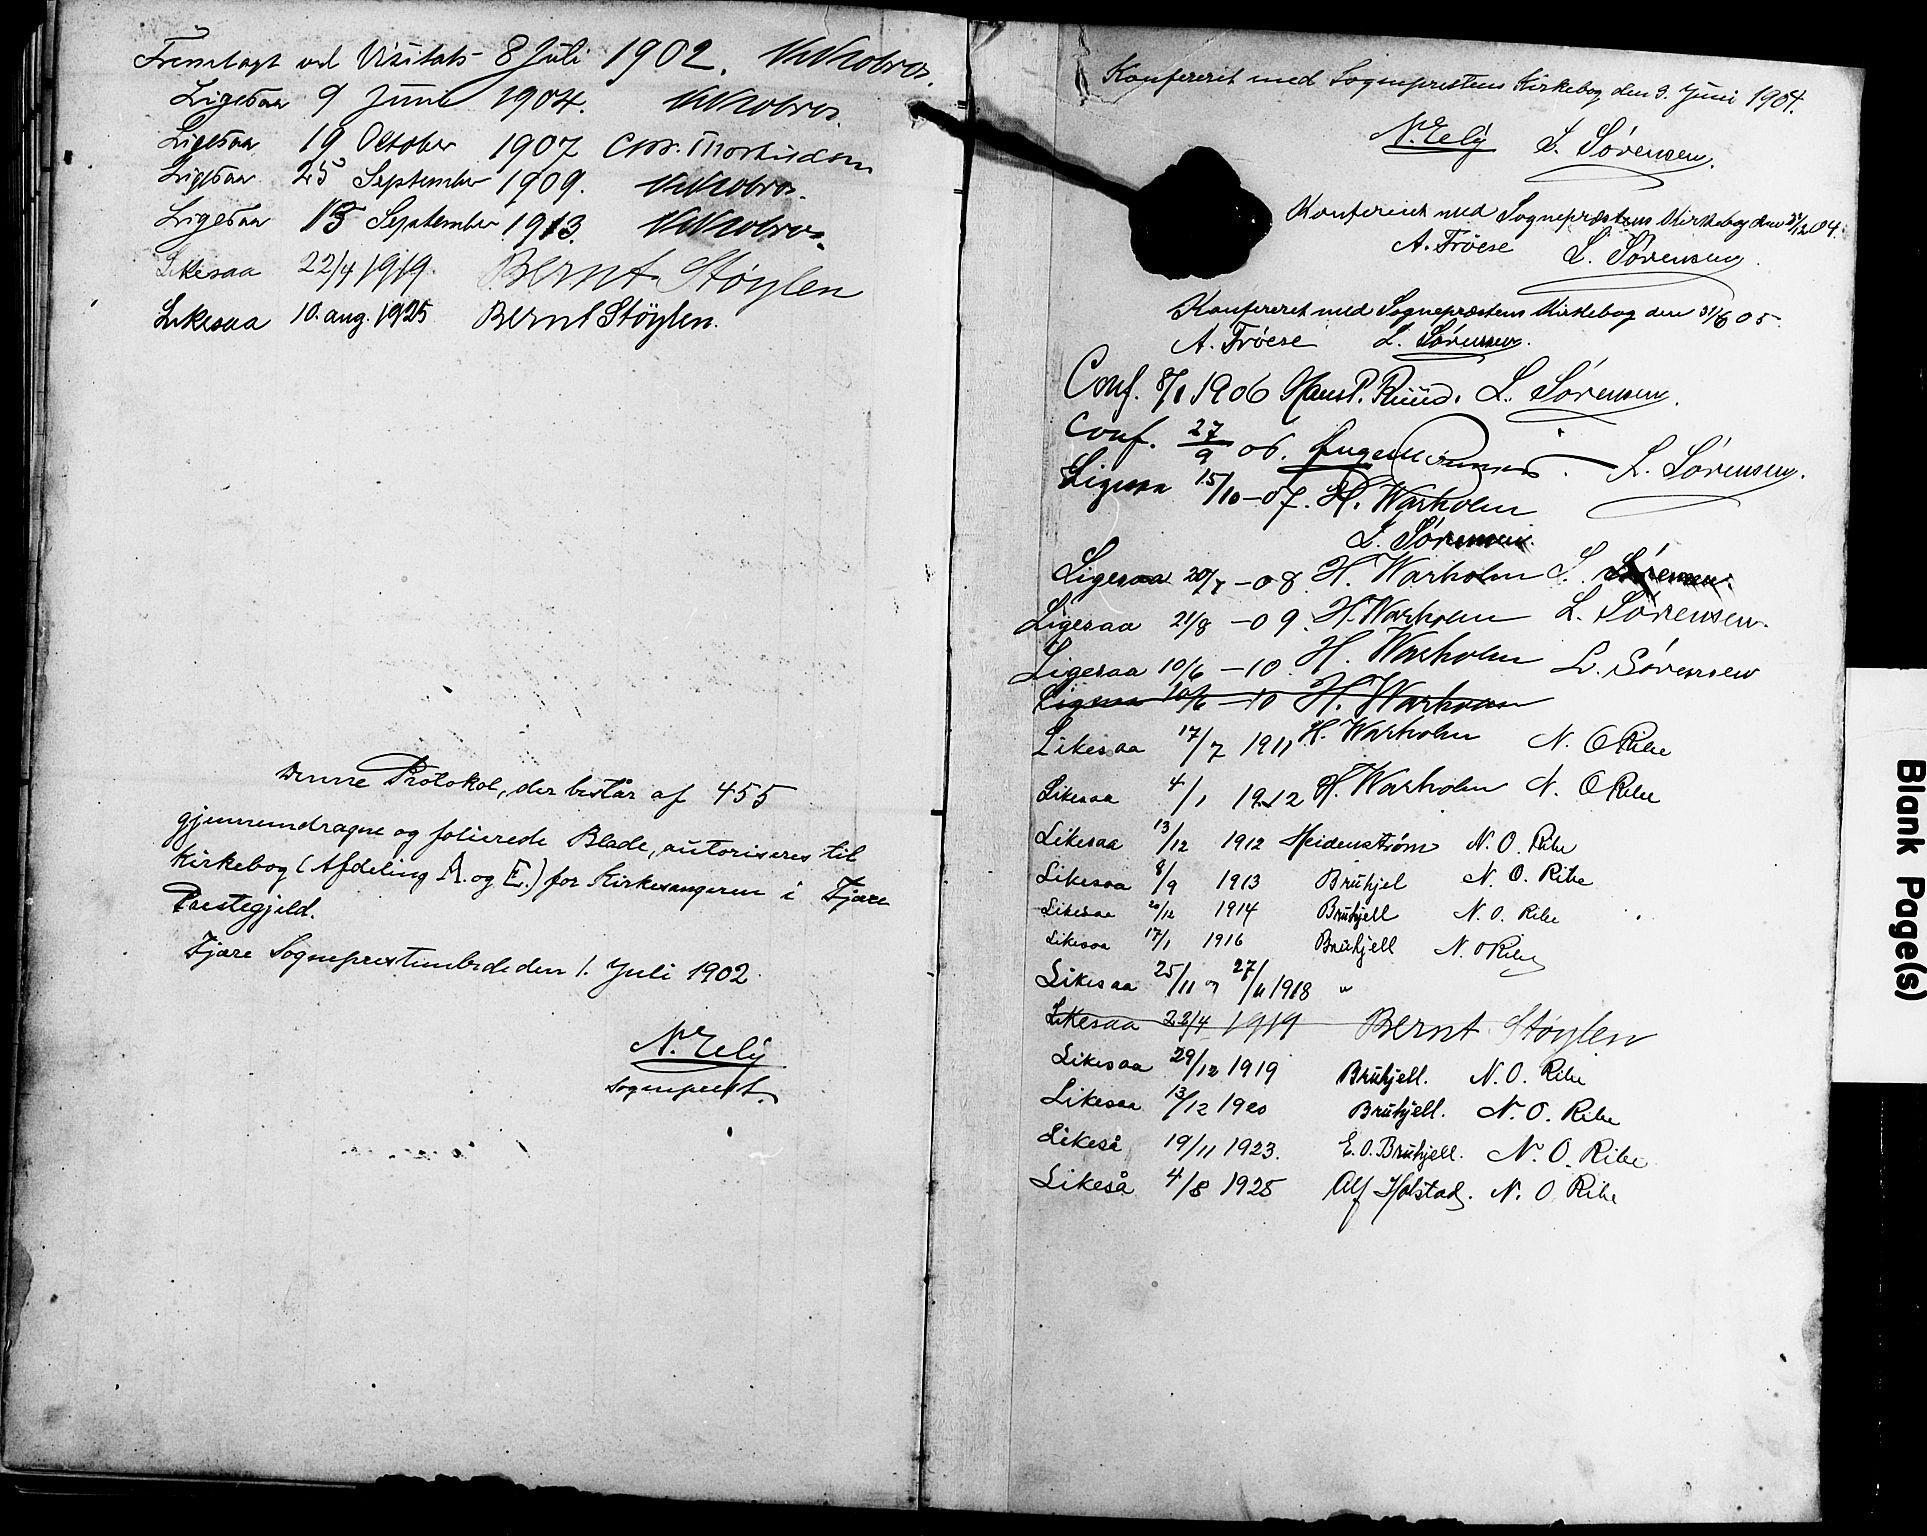 Fremlagt ved Visitats 8 Juli 1902.
Ligesaa 9 Juni 1904.
Ligesaa 19 October 1907
Ligesaa 25 September 1909.
Ligesaa 15 September 1913.
Likesaa 22/4 1919. Bernt Støylen
Likesaa 10. aug. 1925 Bernt Støylen.
Denne Protokol, der består af 455
gjennemdragne og folierede Blade, autoriseres til
Kirkebog (Afdeling A. og E.) for Kirkesangeren i Fjære
Præstegjeld.
Fjære Sogneprestembede den 1. Juli 1902.
Sogneprest.
Konfereret med Sogneprestens Kirkebog den 9. Juni 1904.
L. Sørensen.
Konfereret med Sognepræstens Kirkebog den 31/12 04.
A. Frøese L. Sørensen.
Konfereret med Sognepræstens Kirkebog den 05.
A. Frøese L. Sørensen.
Conf. 8/1 1906 Hans P. Ruud. L. Sørensen.
Conf. 27/9 L. Sørensen.
Ligesaa 15/10 -07. H. Warholm
L. Sørensen.
Ligesaa 20/7 -08 H. Warholm L. Sørensen.
Ligesaa 21/8 -09. H. Warholm L. Sørensen.
Ligesaa 10/6 -10 H. Warholm L. Sørensen
Ligesaa 10/6 -10 H. Warholm
Likesaa 17/7 1911 H. Warholm N. O Ribe
Likesaa 4/1 1912 H. Warholm N. O Ribe
Likesaa 13/12 1912 Heidenstrøm N. O. Ribe
Likesaa 8/9 1913 Bruhjel N. O. Ribe
Likesaa 20/12 1914 Bruhjell N. O. Ribe
Likesaa 17/1 1916 Bruhjell N. O Ribe
Likesaa 25/11 og 27/11 1918 "
Likesaa 22/4 1919 Bernt Støylen
Likesaa 29/12 1919 Bruhjell. N. O. Ribe
Likesaa 13/12 1920 Bruhjell. N. O. Ribe
Likeså 19/11 1923. E. O. Bruhjell. N. O. Ribe
Likeså 4/8 1925 Alf Holstad. N. O. Ribe
Blank Page(s)